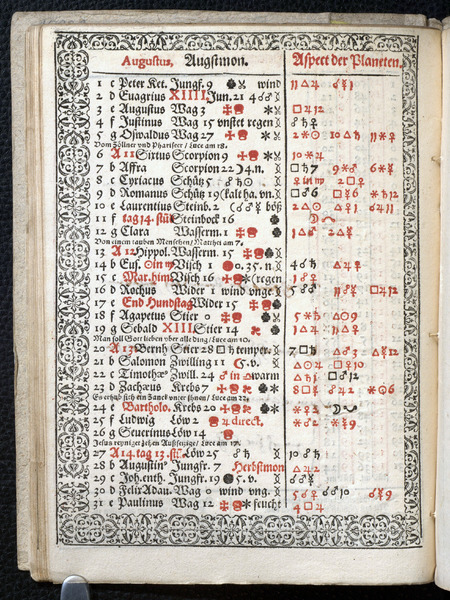 Augustus, Augstmon. Aspect der Planeten.
1 c Peter Ket. Jungf. 9 wind ♃△♃ ☌☿☽
2 d Euagrius XIIII Jun. 21 4☌♂
3 e Augustus Wag 3 ♂□4 12
4 f Justinus Wag 15 vnstet regen ☍♄♀
5 g Oswaldus Wag 27 2✶☉ 10△♄ 11✶♀
Vom Zöllner vnd Phariseer / Luce am 18.
6 A 11 Sixtus Scorpion 9 10✶♃
7 b Affra Scorpion 22 ☽ 4.n. □♄7 9✶♂ 6✶☿
8 c Cyriacus Schütz 5 ☍♄☉ ♀ in ♍ 2□♀
9 d Romanus Schütz 19 kalt ha. vn. □♂6 □☿6 ✶♄12
10 e Laurentius Steinb. 2 böß 2△☉ △♀1 4△☿
11 f tag 14. stū Steinbock 16
12 g Clara Wasserm. 1 1△♂ 2△☿
Von einem tauben Menschen / Matthei am 7.
13 A 12 Hippol. Wasserm. 15
14 b Eus. ☉ in ♍ Visch 1 0. 35. n. 4☍♄ △♃♀
15 c Mar. him Visch 16 regen 1☍♀
16 d Rochus Wider 1 wind vnge 5☍♂ ☍☿ □♃12
17 e End Hundstag Wider 15
18 f Agapetus Stier 0 5✶♄ △☉9
19 g Sebald XIII Stier 14 1△♃ 4△♀
Man soll Gott lieben vber alle ding / Luce am 10.
20 A 13 Bernh Stier 28 temper. 7□♄ △♂3 △☿12
21 b Salomon Zwilling 11 5. v. △☉4 □♀10
22 c Timotheꝰ Zwill. 24 ♂ in ♎ warm △♄1 □♂12
23 d Zachæus Krebs 7 8□☿ ☍♃2 ✶☉6
Es erhub sich ein Zanck vnter jhnen / Luce am 22.
24 e Bartholo. Krebs 20 ✶♀2
25 f Ludwig Löw 2 4 direct. ✶♂2 ✶☿9
26 g Seuerinus Löw 14
Jesus reyniget zehen Aussetzige / Luce am 17.
27 A 14. tag 13. stū Löw 25 ☍♄ 10☍♄
28 b Augustin Jungfr. 7 Herbstmon △♃2
29 c Joh. enth. Jungfr. 19 5. v. ☌♂☿
30 d Felix Adau. Wag 0 wind vng. 5☌♀ ☌♂10 ☌☿9
31 e Paulinus Wag 12 feucht 4□♃